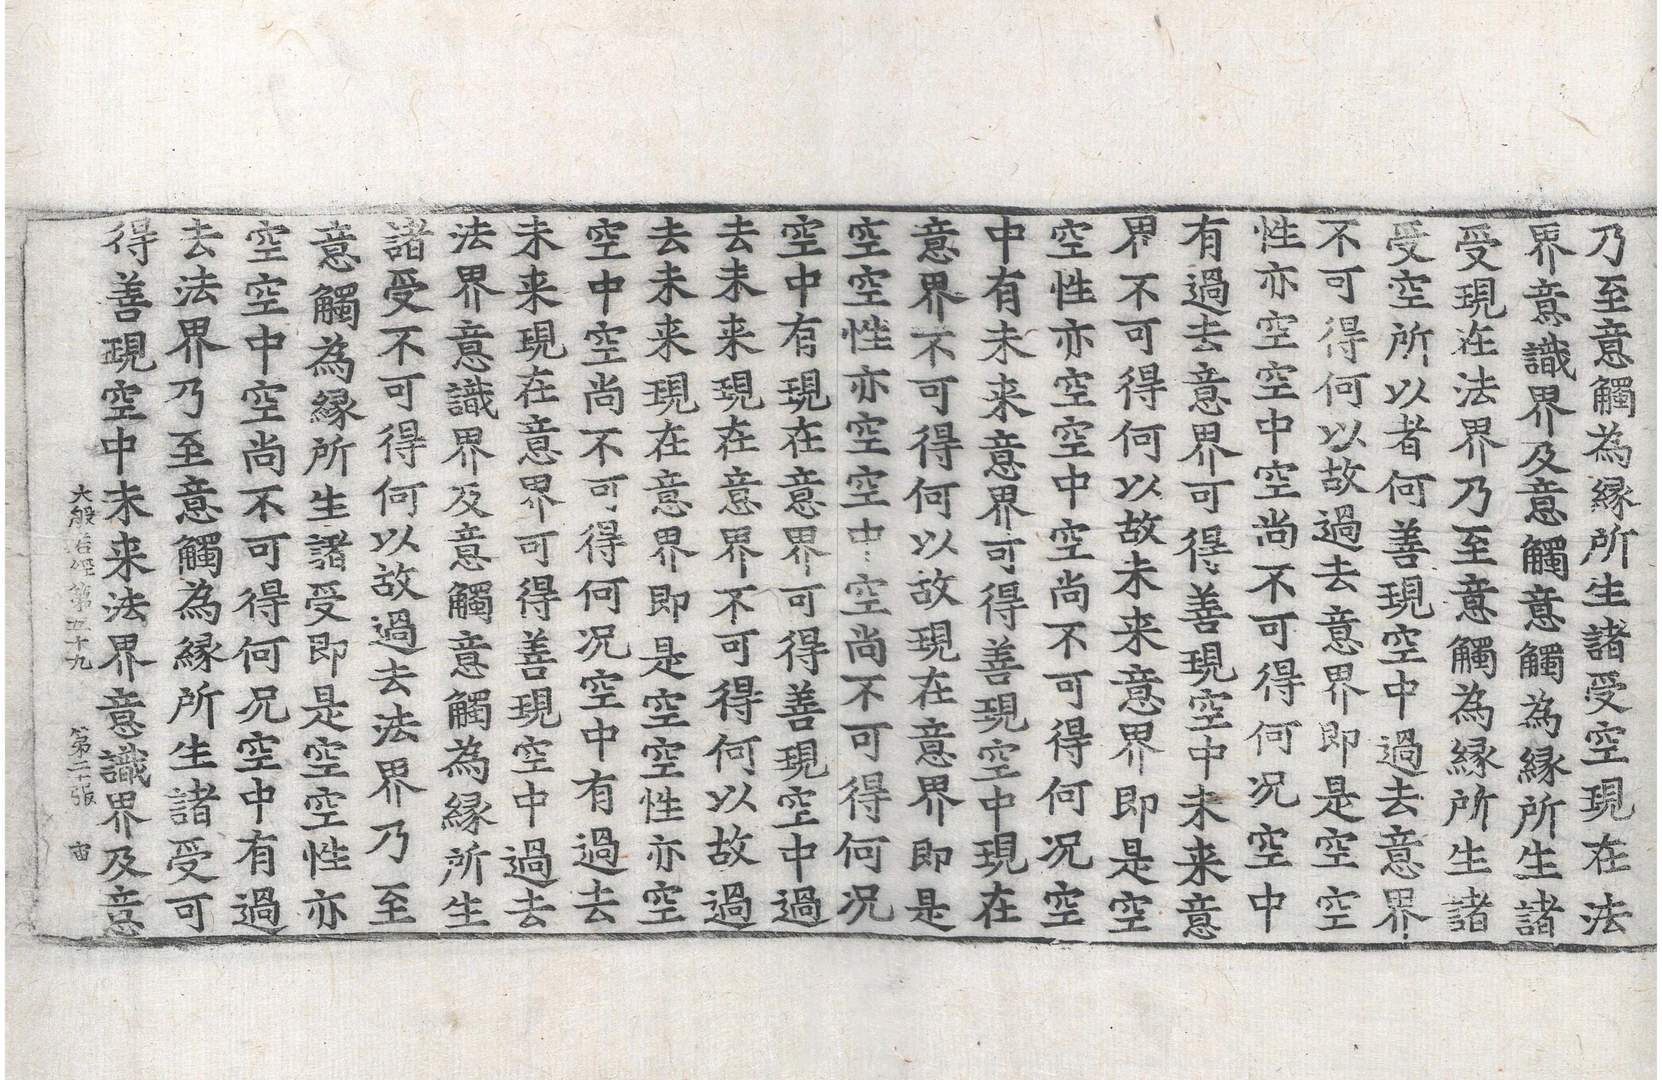 乃至意觸為縁所生諸受空現在法
界意識界及意觸意觸為縁所生諸
受現在法界乃至意觸為縁所生諸
受空所以者何善現空中過去意界
不可得何以故過去意界即是空空
性亦空空中空尚不可得何况空中
有過去意界可得善現空中未来意
界不可得何以故未来意界即是空
空性亦空空中空尚不可得何况空
中有未来意界可得善現空中現在
意界不可得何以故現在意界即是
空空性亦空空中空尚不可得何况
空中有現在意界可得善現空中過
去未来現在意界不可得何以故過
去未来現在意界即是空空性亦空
空中空尚不可得何况空中有過去
未来現在意界可得善現空中過去
法界意識界及意觸意觸為縁所生
諸受不可得何以故過去法界乃至
意觸為縁所生諸受即是空空性亦
空空中空尚不可得何况空中有過
去法界乃至意觸為縁所生諸受可
得善現空中未来法界意識界及意
大般若經第五十九 第二十張 宙